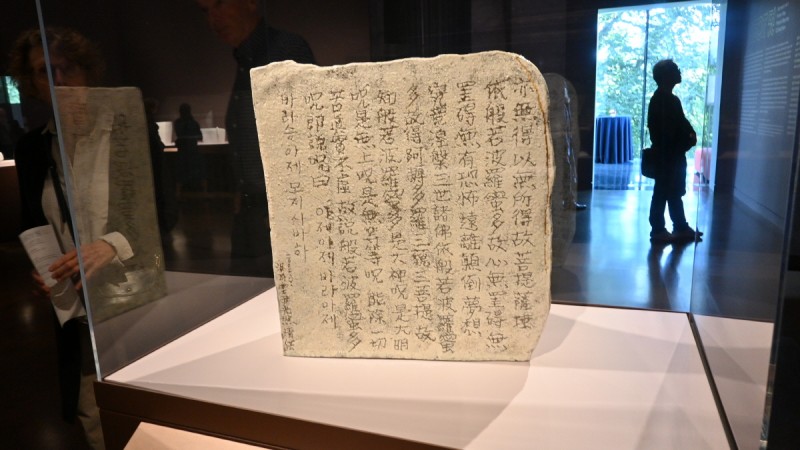 亦無得以無所得故菩提薩埵
依般若波羅蜜多故心無罣碍無
罣碍無有恐怖遠離顚倒夢想
究竟涅槃三世諸佛依般若波羅蜜
多故得阿耨多羅三藐三菩提故
知般若波羅蜜多是大神呪是大明
呪是無上呪是無等等呪能除一切
苦眞實不虛故說般若波羅蜜多
呪卽說呪曰 아제아제 바라아제
바라승아제 모지 사바하